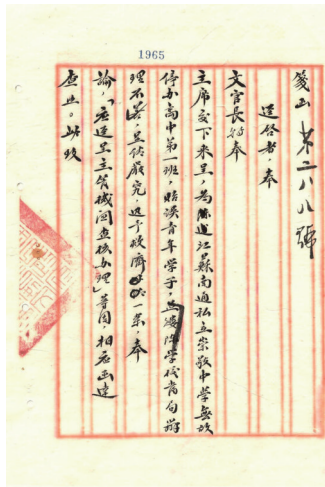 1965
箋函 第二八八號
逕啓者，奉
文官長 奉
主席交下來呈，為陳述江蘇南通私立崇敬中學無故
停办高中第一班，貽誤青年學子，並縷陳學校當局辦
理不善，呈請嚴究，迅予救濟 一案，奉
諭：「應逕呈主管機關查核办理」等因，相應函達
查照。此致